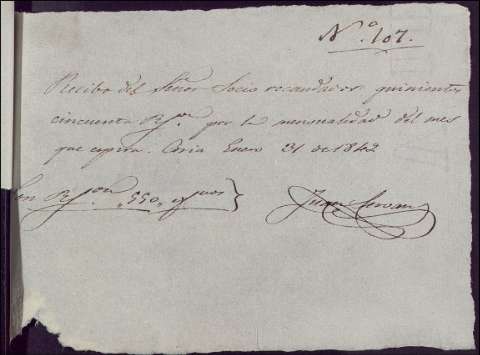 N.º 107.
Recibo del Señor Socio recaudador quinientos
cincuenta R.s on por la mensualidad del mes
que espira. Coria Enero 31 de 1842
Son R.s on 550,,
Juan